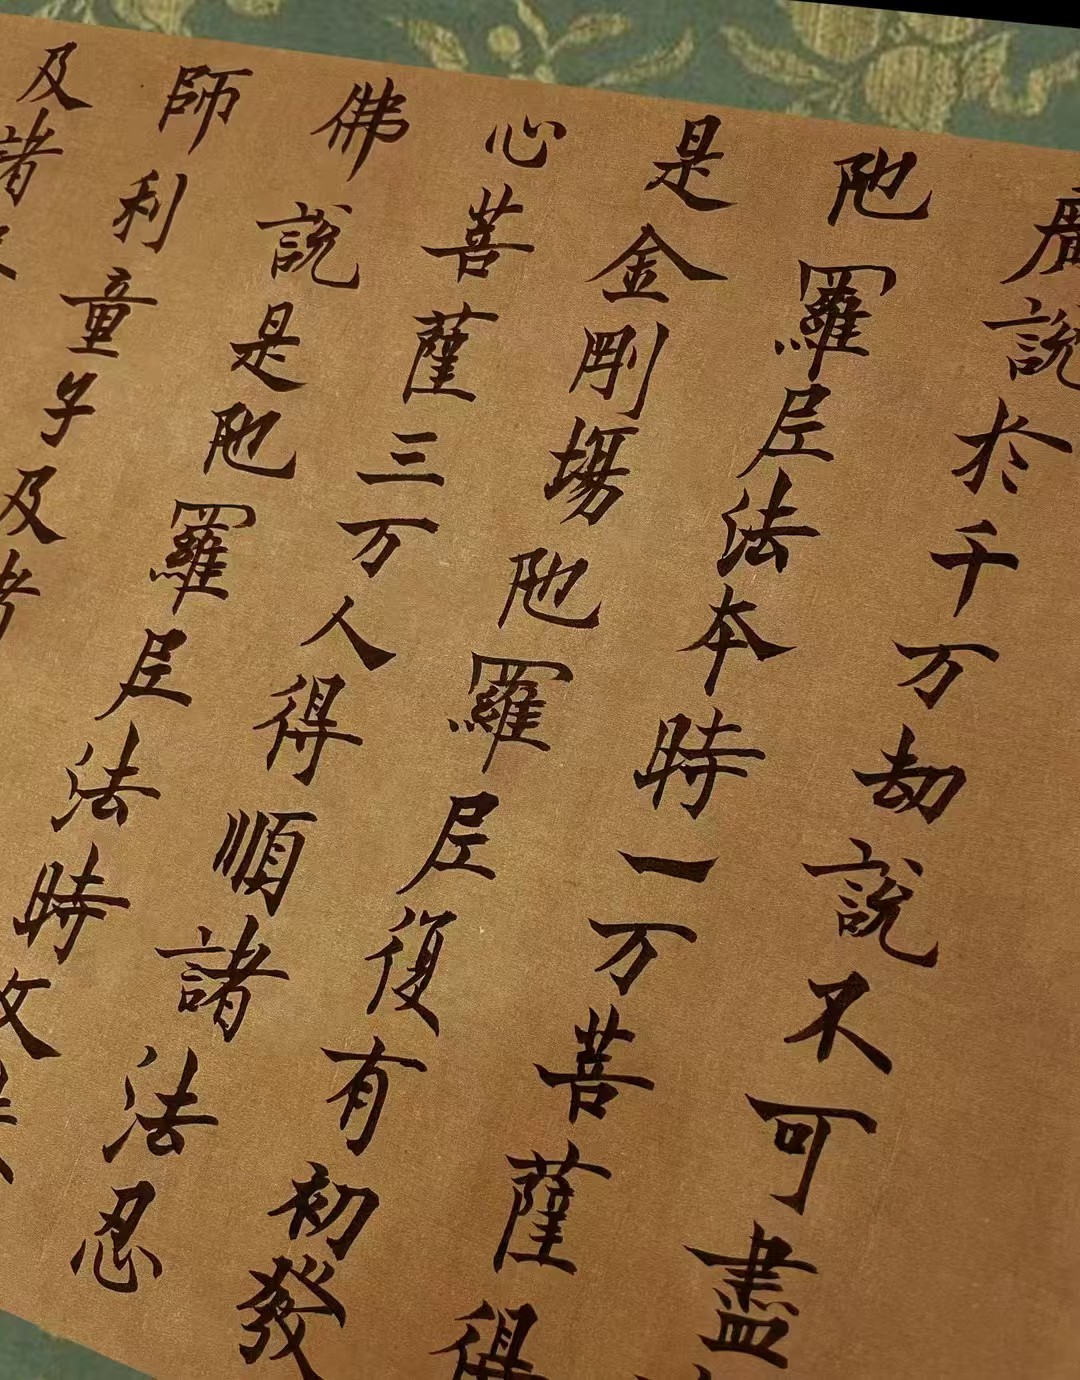 廣說於千万劫說不可盡
陁羅尼法本時一万菩薩得
是金剛場陁羅尼復有初發
心菩薩三万人得順諸法忍
佛說是陁羅尼法時文
師利童子及
及諸